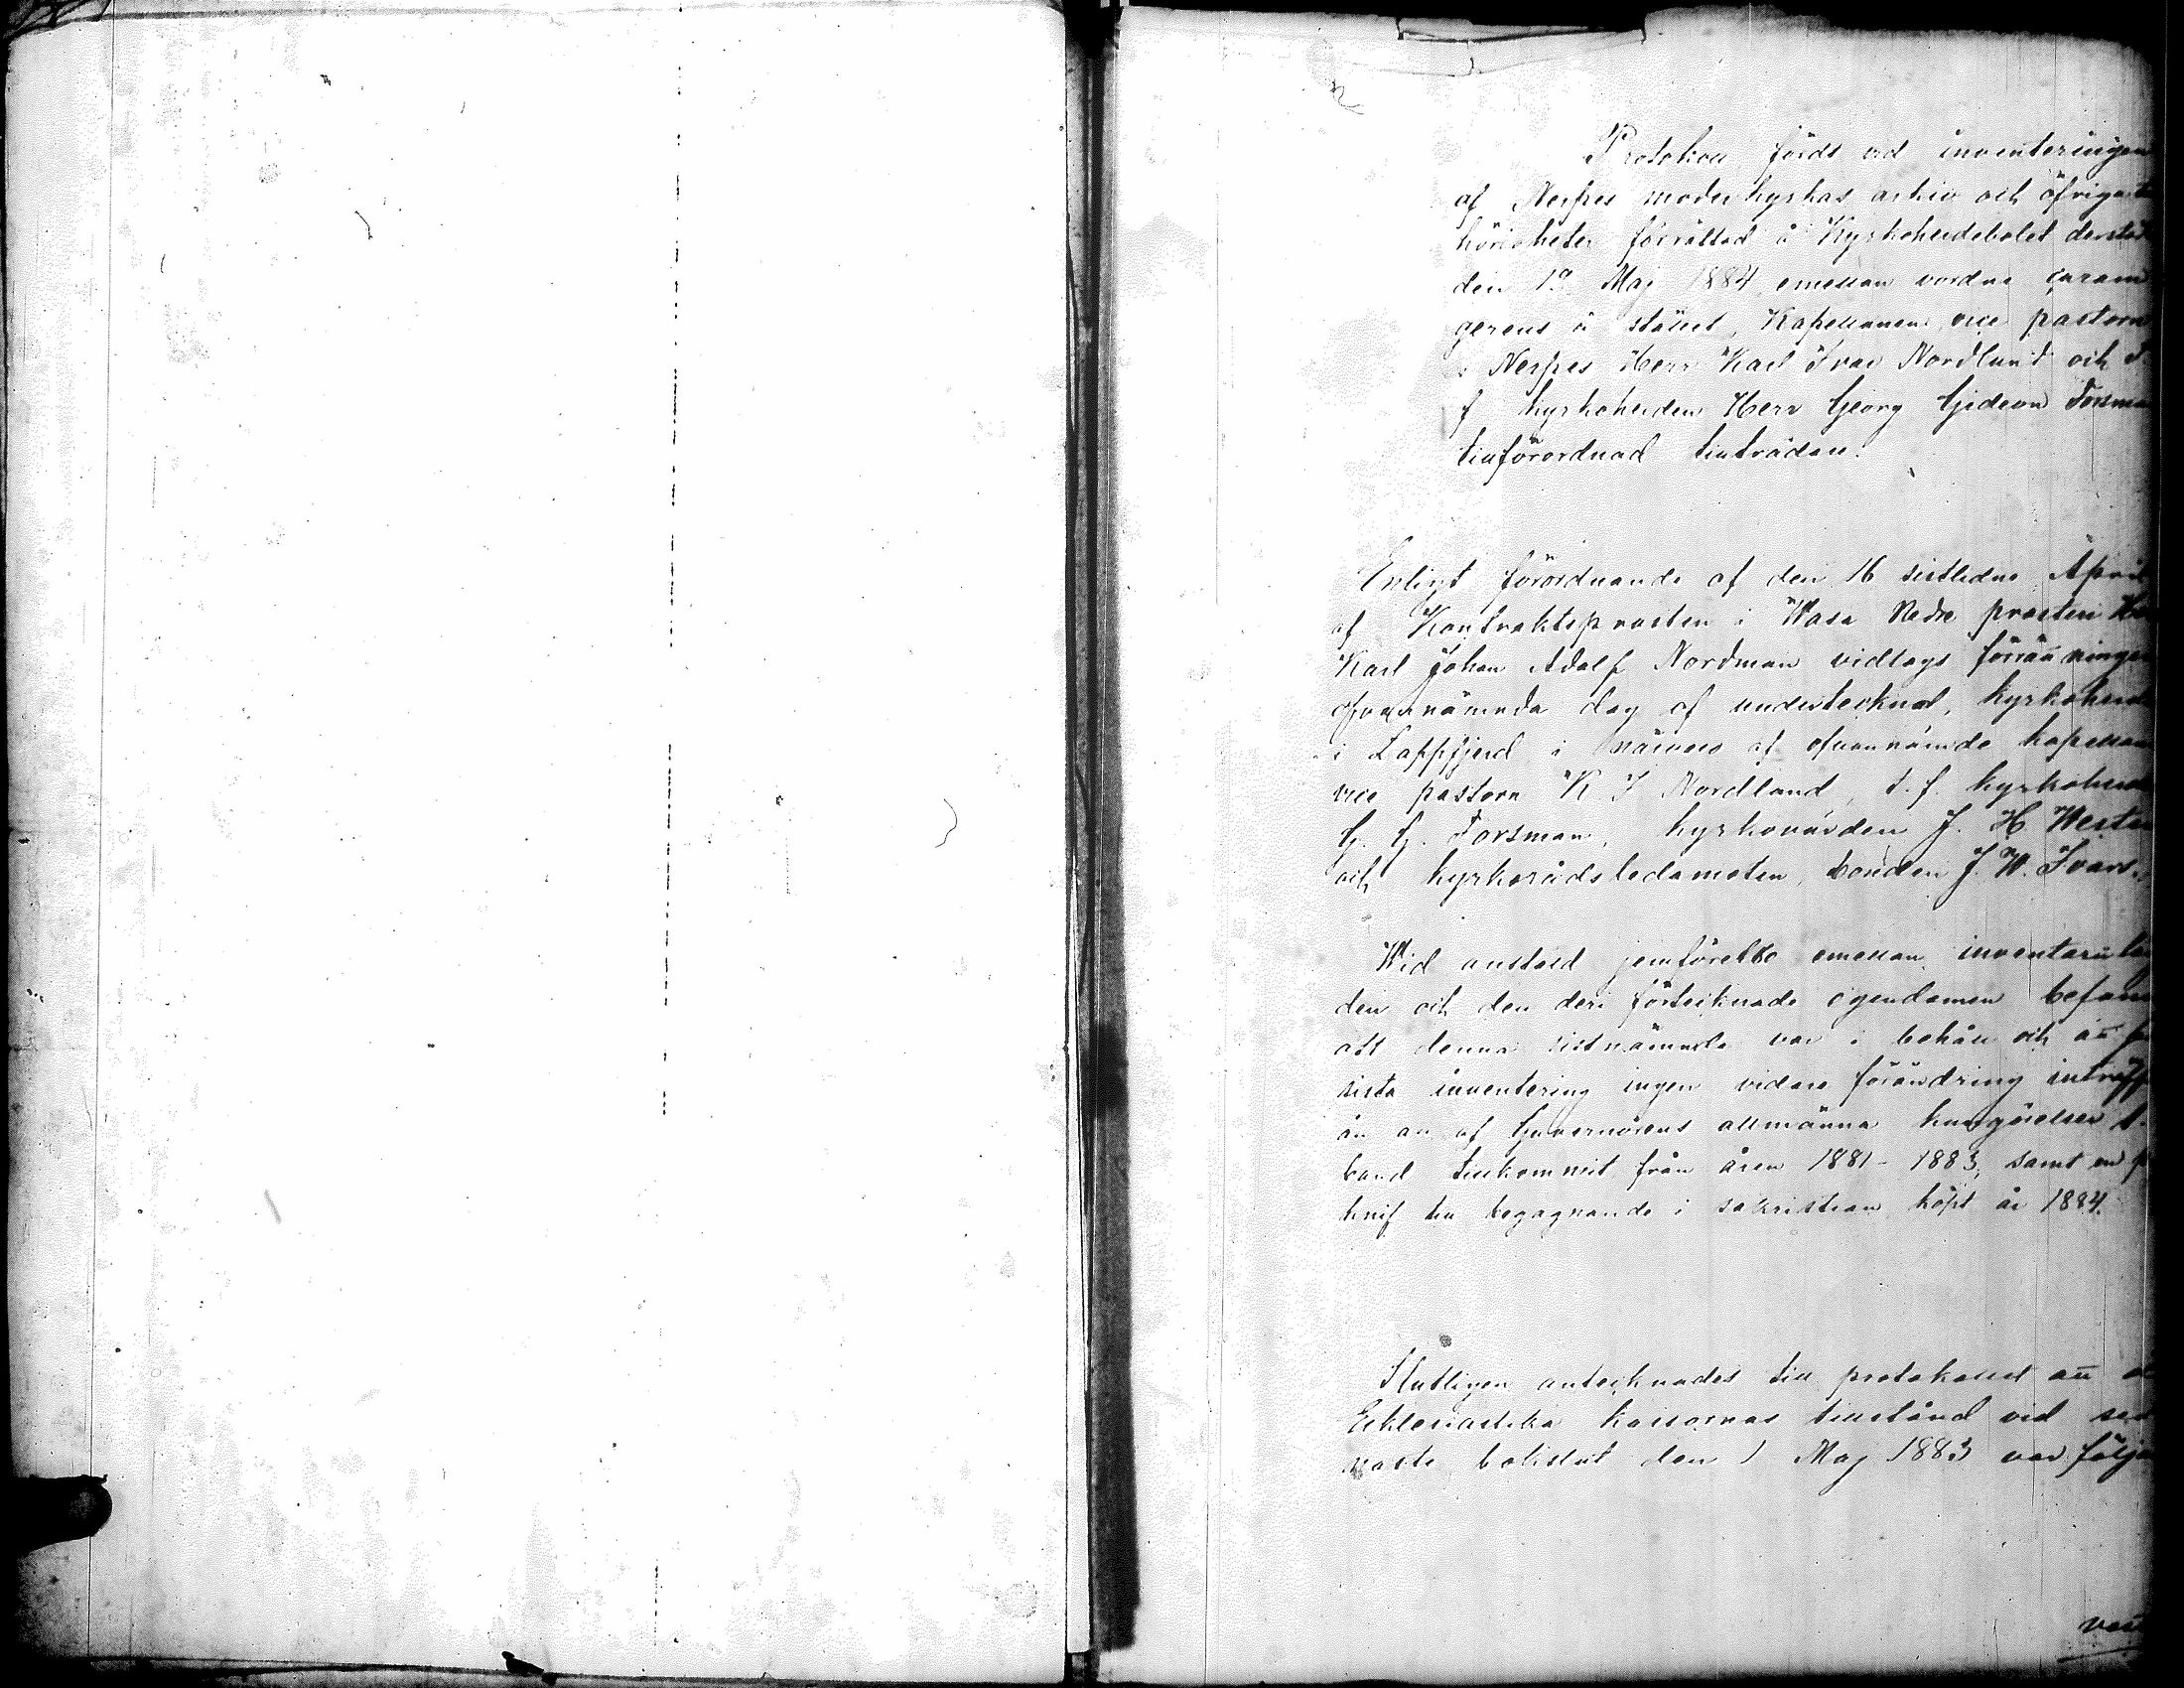 Protokoll fördt vid inventeringen
af Nerpes moderkyrkas arkiv och öfriga
hörigheter förrättad å Kyrkoherdebolet derstäd
den 19 Maj 1884 emellan vordne
gerens å stället, Kapellanen vice pastorn
i Nerpes Herr Karl Ivar Nordlund och t.
f kyrkoherden Herr Georg Gideon Forsman
tillförordnad tillträdare.
Enligt förordnande af den 16 sistlidne April
af Kontraktsprosten i Wasa Nedre prosten
Karl Johan Adolf Nordman vidtogs förrättningen
ofvannämnda dag af undertecknad, kyrkoherde
i Lappfjerd i närvaro af ofvannämnde kapellan
vice pastorn K I Nordlund, t. f. kyrkoherde
G. G. Forsman, kyrkovärden J. H Wester
och kyrkorådsledamoten, bonden J. W. Ivars.
Wid anstäld jemförelse emellan inventarii
den och den deri förtecknade egendomen befann
att denna sistnämnde var i behåll och att
sista inventering ingen vidare förändring inträff
än att af Guvernörens allmänna kungörelser 1.
band tillkommit från åren 1881-1883, samt en
knif till begagnande i sakristian köpt år 1884.
Slutligen antecknades till protokollet att
Ecklesiastika kassornas tillstånd vid sed
naste bokslut den 1 Maj 1883 var följa